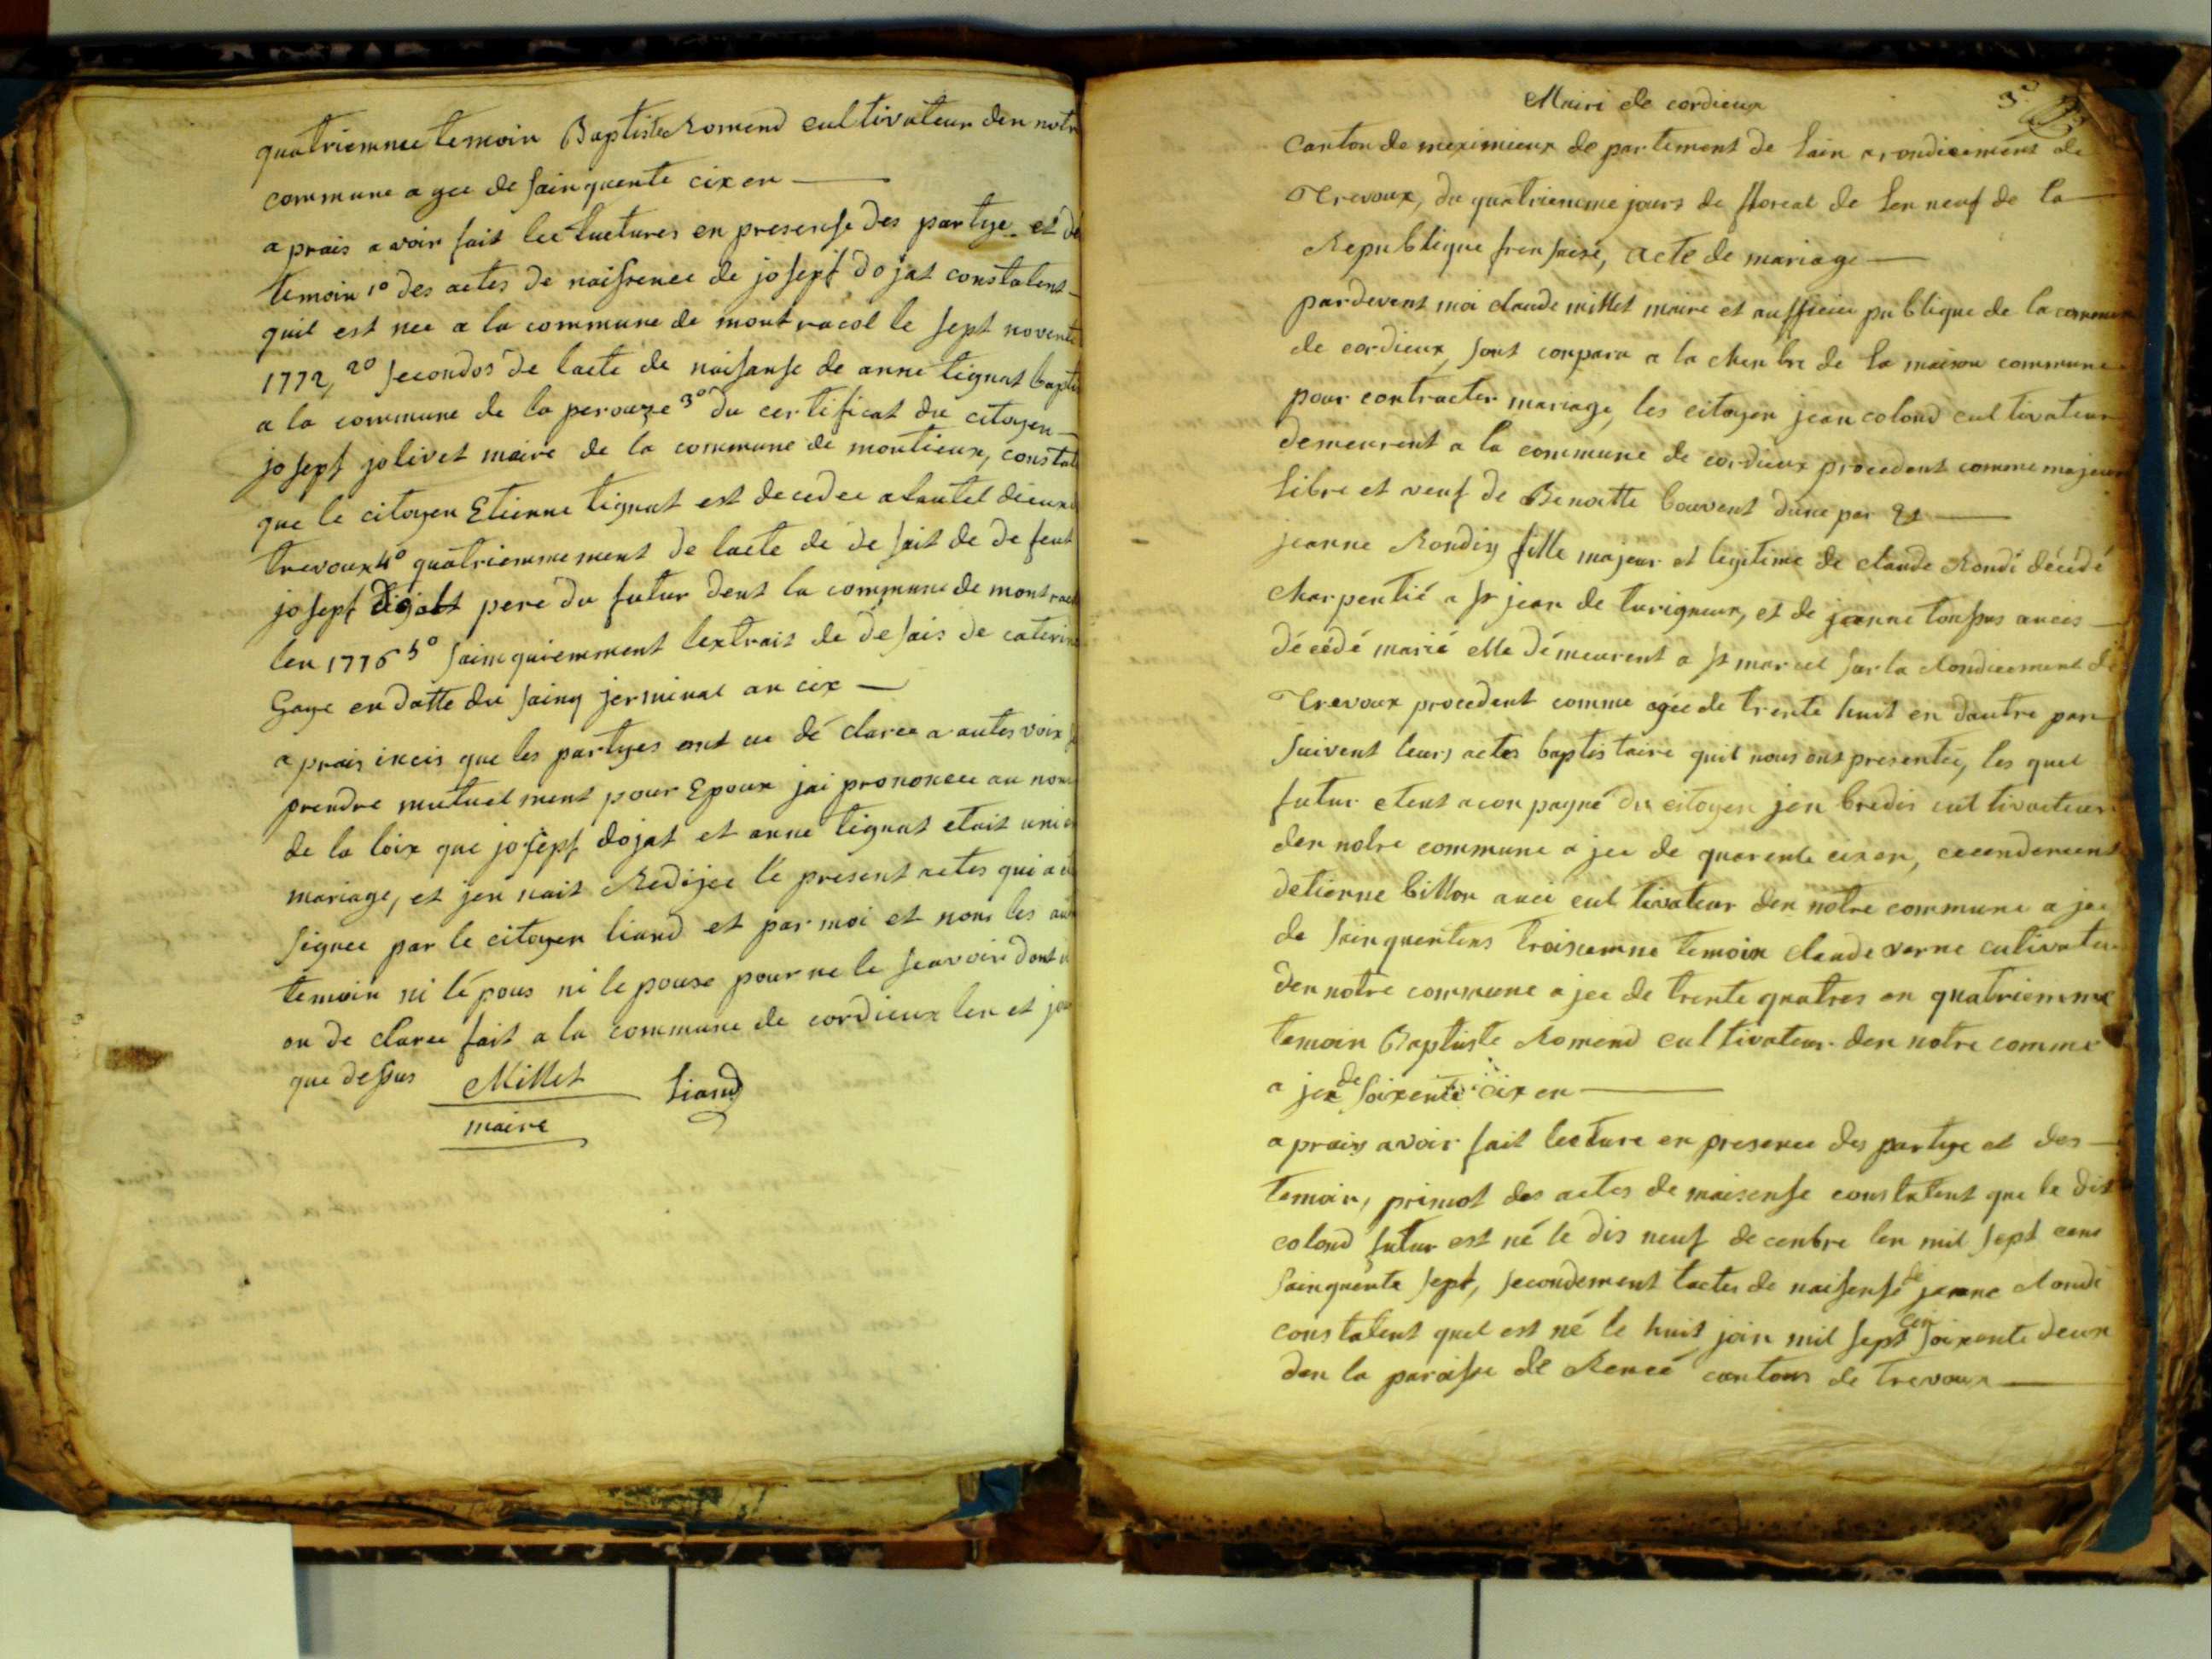 quatriemnee temoin Baptiste Romend cultivateur den notr
commune a gee de sainquente cix en
a prais avoir fait lectuctures en presense des partye et de
temoin 1o des actes de naissence de josept dojat constatent
quil est nee a la commune de montracol le sept novemb
1772, 2o secondos de lacte de naisanse de anne tignat baptis
a la commune de la perouze 3o du certificat du citoyen
josept jolivet maire de la commune de montieux, constat
que le citoyen Etienne tignat est decedee a lautel dieux
trevoux 4o quatriemmement de lacte de de sait de de feut
josept dojat pere du futur dent la commune de montrac
len 1776 5o sainquiemment lextrait de de sais de caterin
Gaye en datte du sainq jerminal an cix
a prais incis que les partyes ont eu dé claree a autes voix
prendre mutuelment pour Epoux jai prononcee au nom
de la loix que josept dojat et anne tignat etait uni en
mariage, et jen nait Redijee le present actes qui a et
signee par le citoyen liand et par moi et nom les au
temoin ni lépous ni le pouse pour ne le scavoir dont
on de claree fait a la commune de cordieux len et jour
que dessus Millet liand
maire
Mairi de cordieux
3e
Canton de meximieux de partement de lain arondicement de
Trevoux, du quatriemme jours de floreal de len neuf de la
Republique frensaise, acte de mariage
pardevent moi claude millet maire et aufficiee publique de la commune
de cordieux, sont conparu a la chenbre de la maison commune
pour contracter mariage, les citoyen jean colond cultivateur
demeurent a la commune de cordieux procedent comme majeur
libre et veuf de Benoitte bouvent dune par Et
jeanne Rondiy fille majeur et legitime de claude Rondi décédé
charpentié a st jean de turigneux, et de jeanne tonssus aucis
décédé marié elle démeurent a st marcel sur la Rondicement de
Trevoux procedent comme agée de trente huit en dautre par
suivent leurs actes baptistaire quil nous ont presentée, les quel
futur etent aconpagné du citoyen jen bredis cultivateur
den notre commune a jee de quarente cix en, cecendement
detienne billon auci cultivateur den notre commune a jee
de sainquentens troisiemne temoin claude verne cultivateu
den notre commune a jee de trente quatres en quatriemme
temoin Baptiste Romend cultivateur den notre comme
a jee de soixente cix en
a prais avoir fait lecture en presence des partye et des
temoin, primot des actes de naisense constatent que le dit
colond futur est né le dis neuf decenbre len mil sept cens
sainquente sept, secondement lactes de naissense de jeanne Rondi
constatent quel est né le huit join mil sept cen soixente deux
den la paroisse de Rencé cantons de trevoux